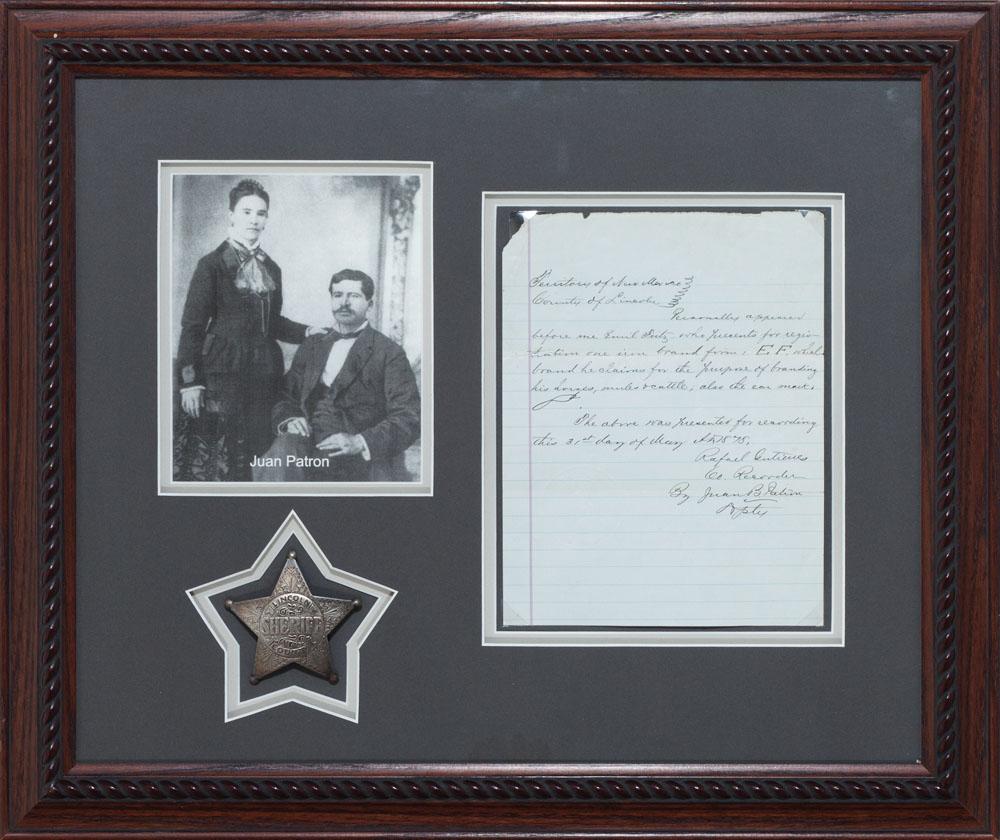 Juan Patron
LINCOLN
SHERIFF
COUNTY
Territory of New Mexico
County of Lincoln
Personally appeared
before me Emil Fritz who presents for regis-
tration one iron brand from: E.F. which
brand he claims for the purpose of branding
his horses, mules & cattle; also the ear mark:
The above was presented for recording
this 31st day of May A.D.
Rafael Gutierres
Co. Recorder
By Juan B. Patron
Dpty